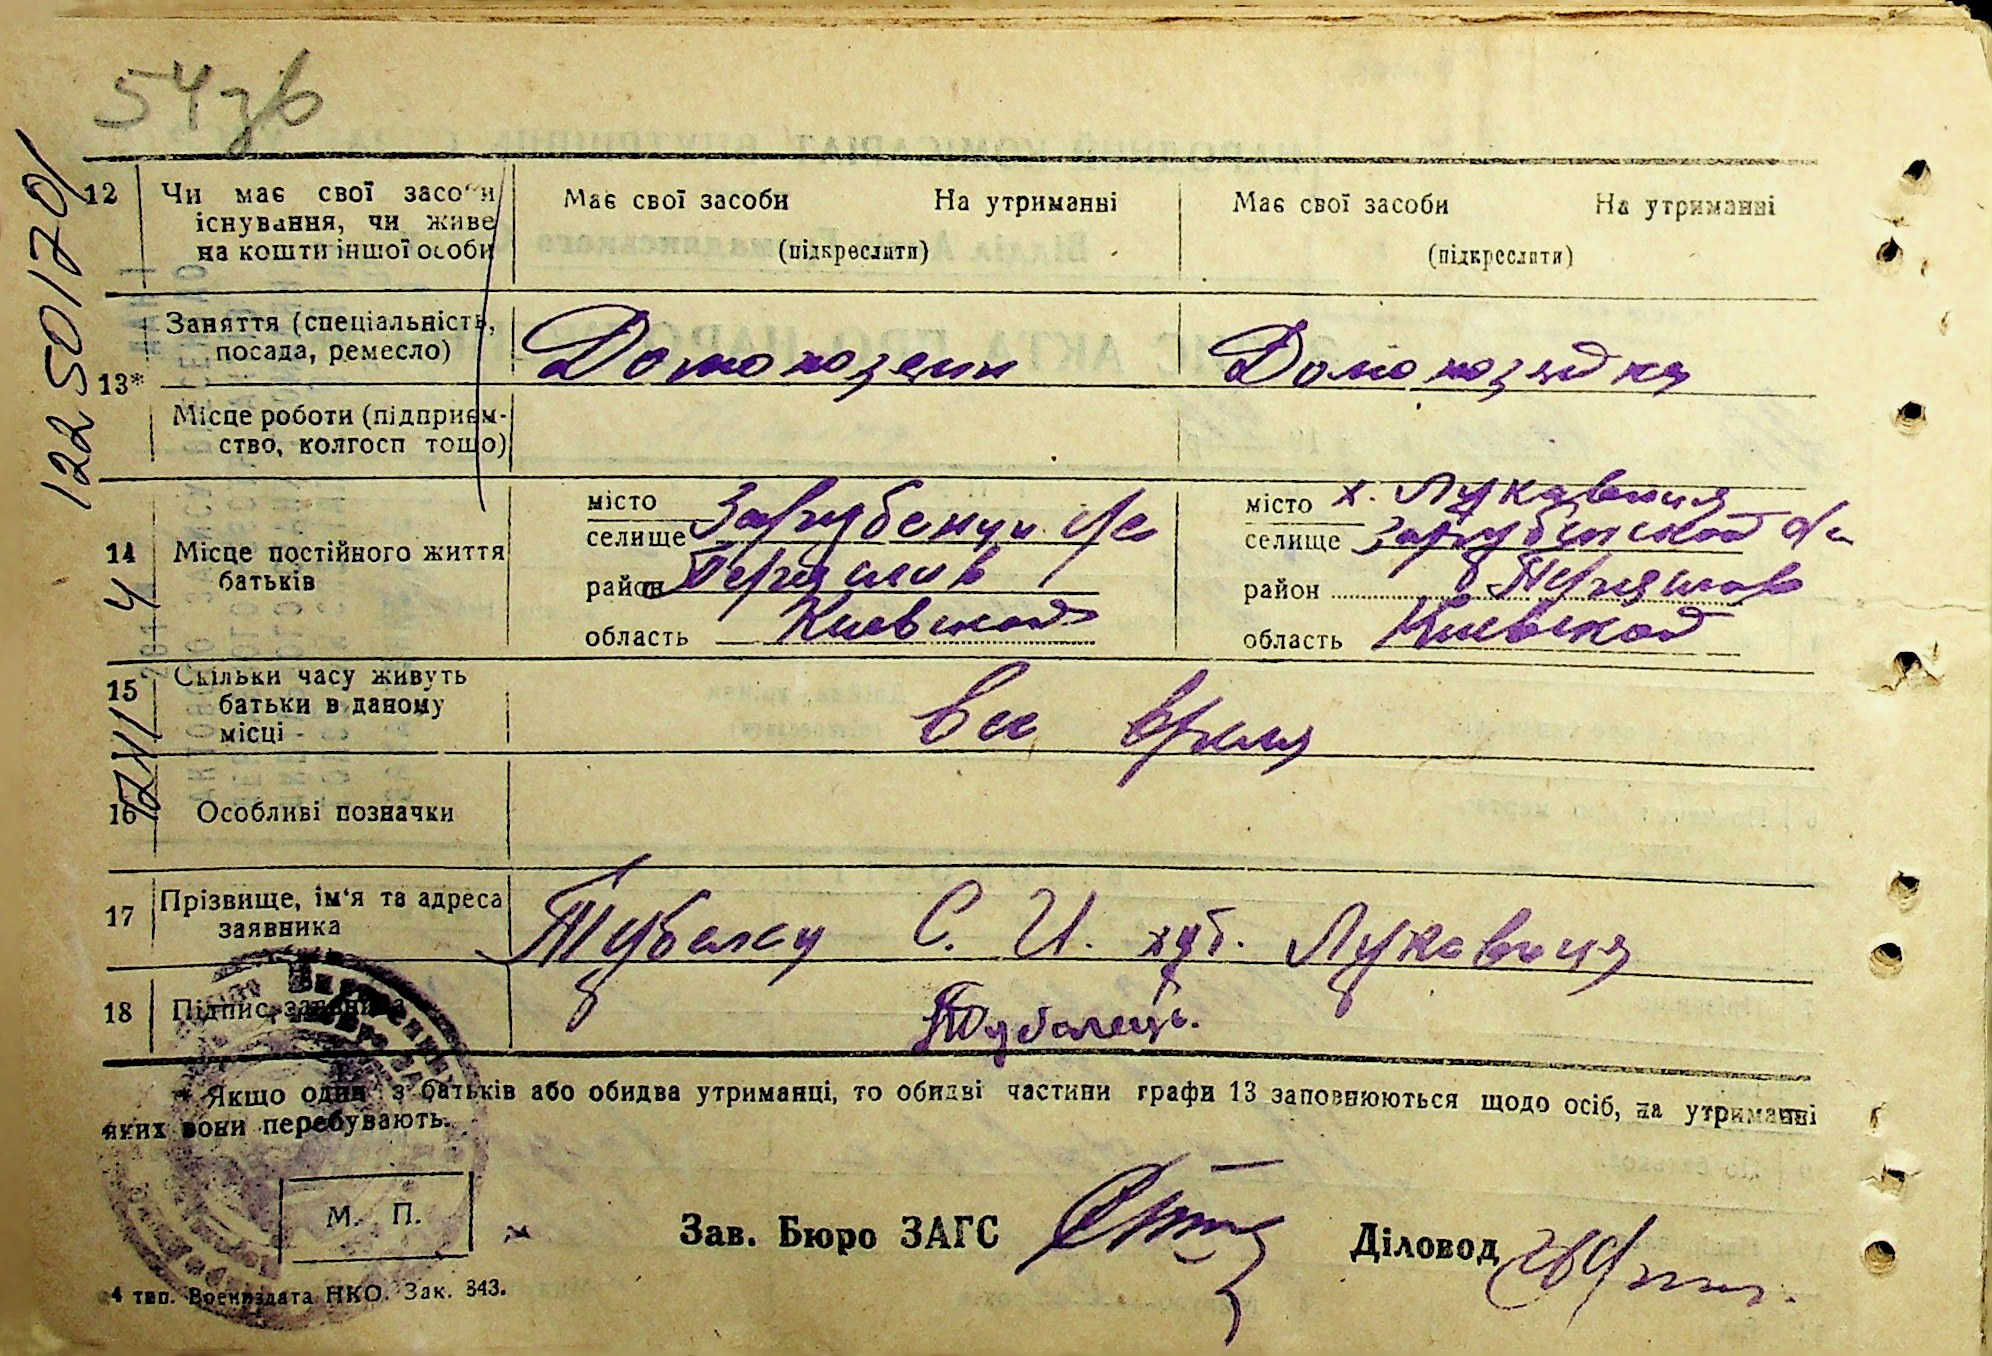 54зв
12250170
12 Чи має свої засоби Має свої засоби На утриманні Має свої засоби На утриманні
існування, чи живе
на кошти іншої особи (підкреслити) (підкреслити)
Заняття (спеціальність, Домохозяин Домохозяйка
посада, ремесло)
13*
Місце роботи (підприєм-
ство, колгосп тощо)
місто місто х. Луковица
селище Зарубенци с/с селище Зарубенской с/с
14 Місце постійного життя
батьків
район Переяслов район Переяслов
область Киевской область Киевской
15 Скільки часу живуть
батьки в даному все время
місці
16 Особливі позначки
17 Прізвище, ім'я та адреса
заявника Тубалец С. И. хут. Луковица
18 Підпис заявника Тубалець.
* Якщо один з батьків або обидва утриманці, то обидві частини графи 13 заповнюються щодо осіб, на утриманні
яких вони перебувають.
М. П.
Зав. Бюро ЗАГС Діловод
4 тип. Воениздата НКО. Зак. 343.